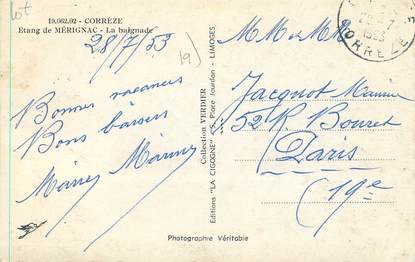 lot
19.002.02 - CORRÈZE
Etang de MÉRIGNAC - La baignade
28/7/53
19)
Bonnes vacances
Bons baisers
Collection VERDIER
Editions "LA CIGOGNE" - 5, Place Jourdan - LIMOGES
Photographie Véritable
CORRÈZE
Jacquot
52 R. Bouret
Paris
(19e)